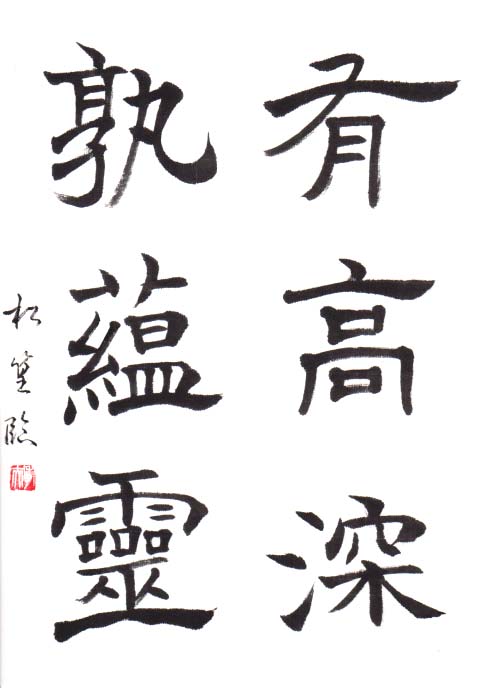 有高深
孰蘊靈
松篁臨